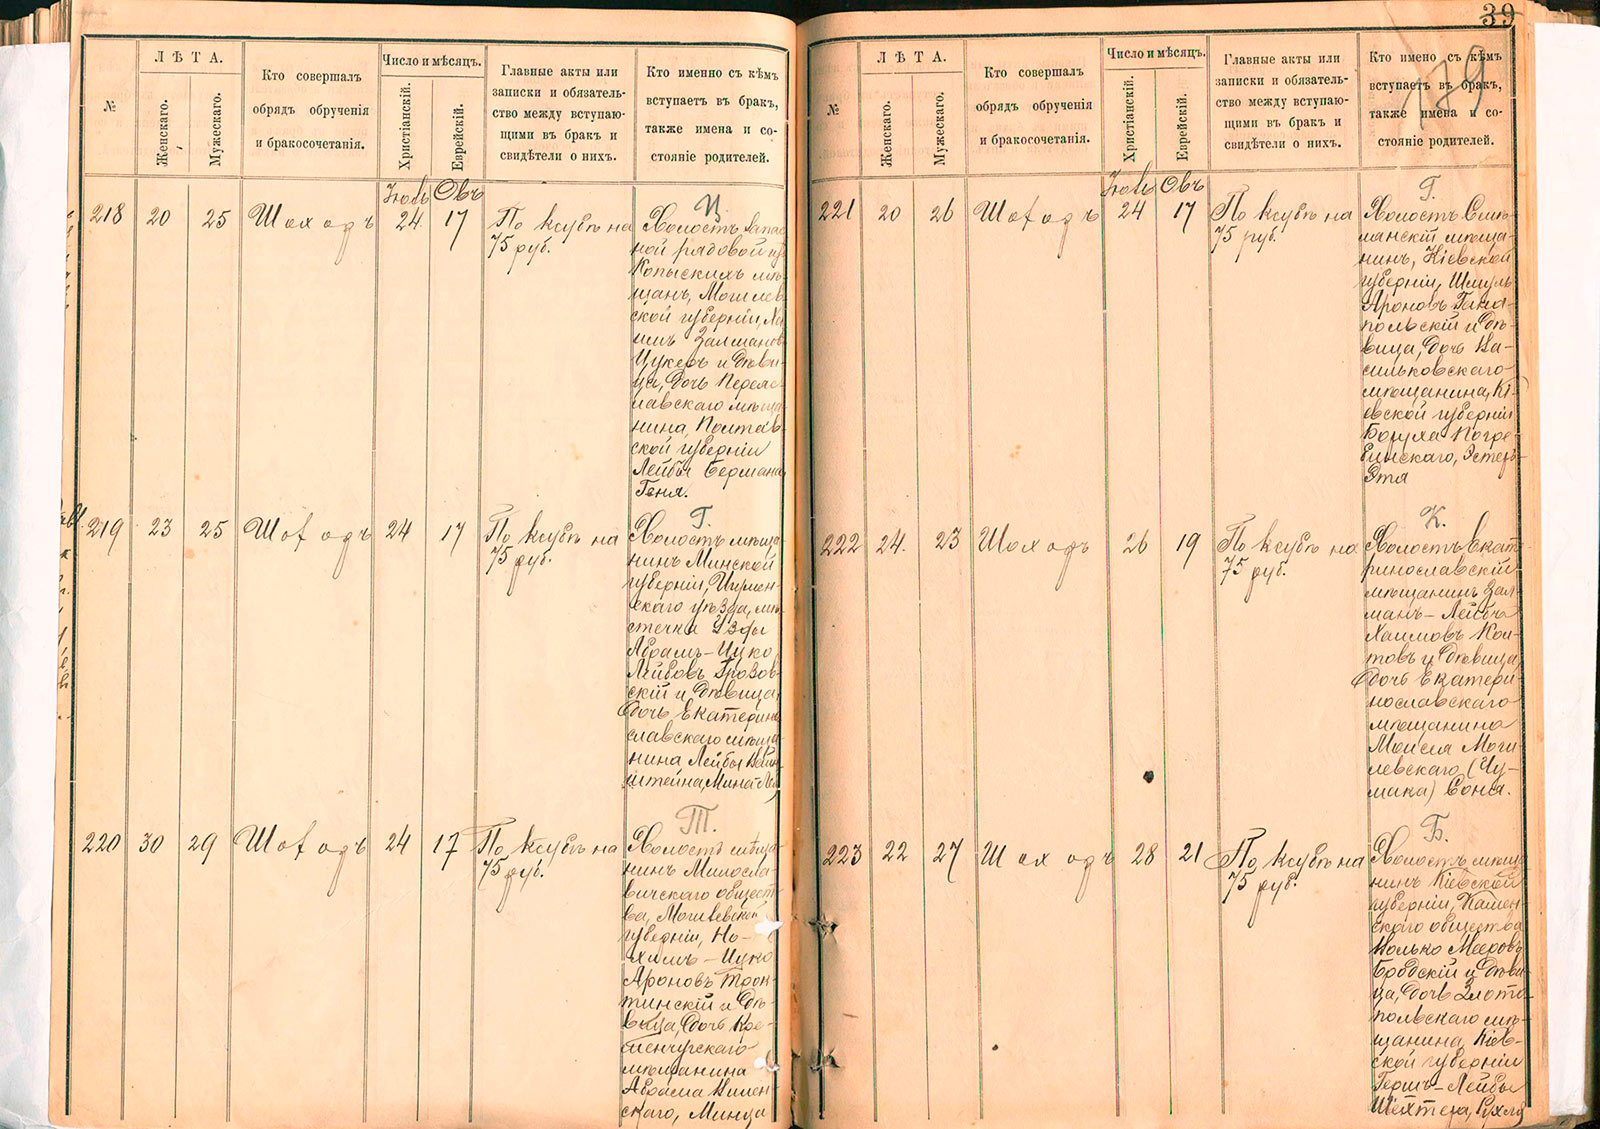 39
179
№
ЛѢТА.
Женскаго.
Мужескаго.
Кто совершалъ
обрядъ обрученія
и бракосочетанія.
Число и мѣсяцъ.
Христіанскій.
Еврейскій.
Главные акты или
записки и обязатель-
ство между вступаю-
щими въ бракъ и
свидѣтели о нихъ.
Кто именно съ кѣмъ
вступаетъ въ бракъ,
также имена и со-
стояніе родителей.
Іюль Овъ
218 20 25 Шоходъ 24 17 По ксубѣ на
75 руб.
Ц.
Холостъ запас
ной рядовой изъ
Копыскихъ мѣ
щанъ, Могилев
ской губерніи, Хаимъ
Залманов
Цукеръ и дѣви-
ца, дочь Переяс
лавскаго мѣща
нина, Полтав
ской губерніи
Лейбы Бермана
Геня.
219 23 25 Шоходъ 24 17 По ксубѣ на
75 руб.
Г.
Холостъ мѣща
нинъ Минской
губерніи, Игумен-
скаго уѣзда, мѣ
стечка Узды
Абрамъ-Ицко
Лейбовъ Грозов-
скій и дѣвица,
дочь Екатерино
славскаго мѣща
нина Лейбы Вайн
штейна, Мина-Лея
220 30 29 Шоходъ 24 17 По ксубѣ на
75 руб.
Т.
Холостъ мѣща
нинъ Милосла-
вичскаго общест-
ва, Могилевской
губерніи, Но-
химъ-Ицко
Ароновъ Трок-
тинскій и дѣ-
вица, дочь Кре-
менчугскаго
мѣщанина
Абрама
скаго, Минда
№
ЛѢТА.
Женскаго.
Мужескаго.
Кто совершалъ
обрядъ обрученія
и бракосочетанія.
Число и мѣсяцъ.
Христіанскій.
Еврейскій.
Главные акты или
записки и обязатель-
ство между вступаю-
щими въ бракъ и
свидѣтели о нихъ.
Кто имено съ кѣмъ
вступаетъ въ бракъ,
также имена и со-
стояніе родителей.
Іюль Овъ
221 20 26 Шоходъ 24 17 По ксубѣ на
75 руб.
Г.
Холостъ Смѣ-
лянскій мѣща-
нинъ, Кіевской
губерніи, Шмуль
Ароновъ Гайса-
польскій и дѣ-
вица, дочь Ва-
сильковскаго
мѣщанина, Кі-
евской губерніи
Боруха Погре-
бинскаго, Эстеръ-
Этя
222 24 23 Шоходъ 26 19 По ксубѣ на
75 руб.
К.
Холостъ Екате
ринославскій
мѣщанинъ Зал-
манъ-Лейбъ
Хаимовъ Кол-
товъ и дѣвица,
дочь Екатери-
нославскаго
мѣщанина
Моисея Моги-
левскаго (Чу-
мака) Соня.
223 22 27 Шоходъ 28 21 По ксубѣ на
75 руб.
Б.
Холостъ мѣща
нинъ Кіевской
губерніи, Камен-
скаго общества
Волько Мееровъ
Бродскій и дѣви-
ца, дочь Злото-
польскаго мѣ-
щанина, Кіев-
ской губерніи
Гершъ-Лейбы
Шехтера, Рухля